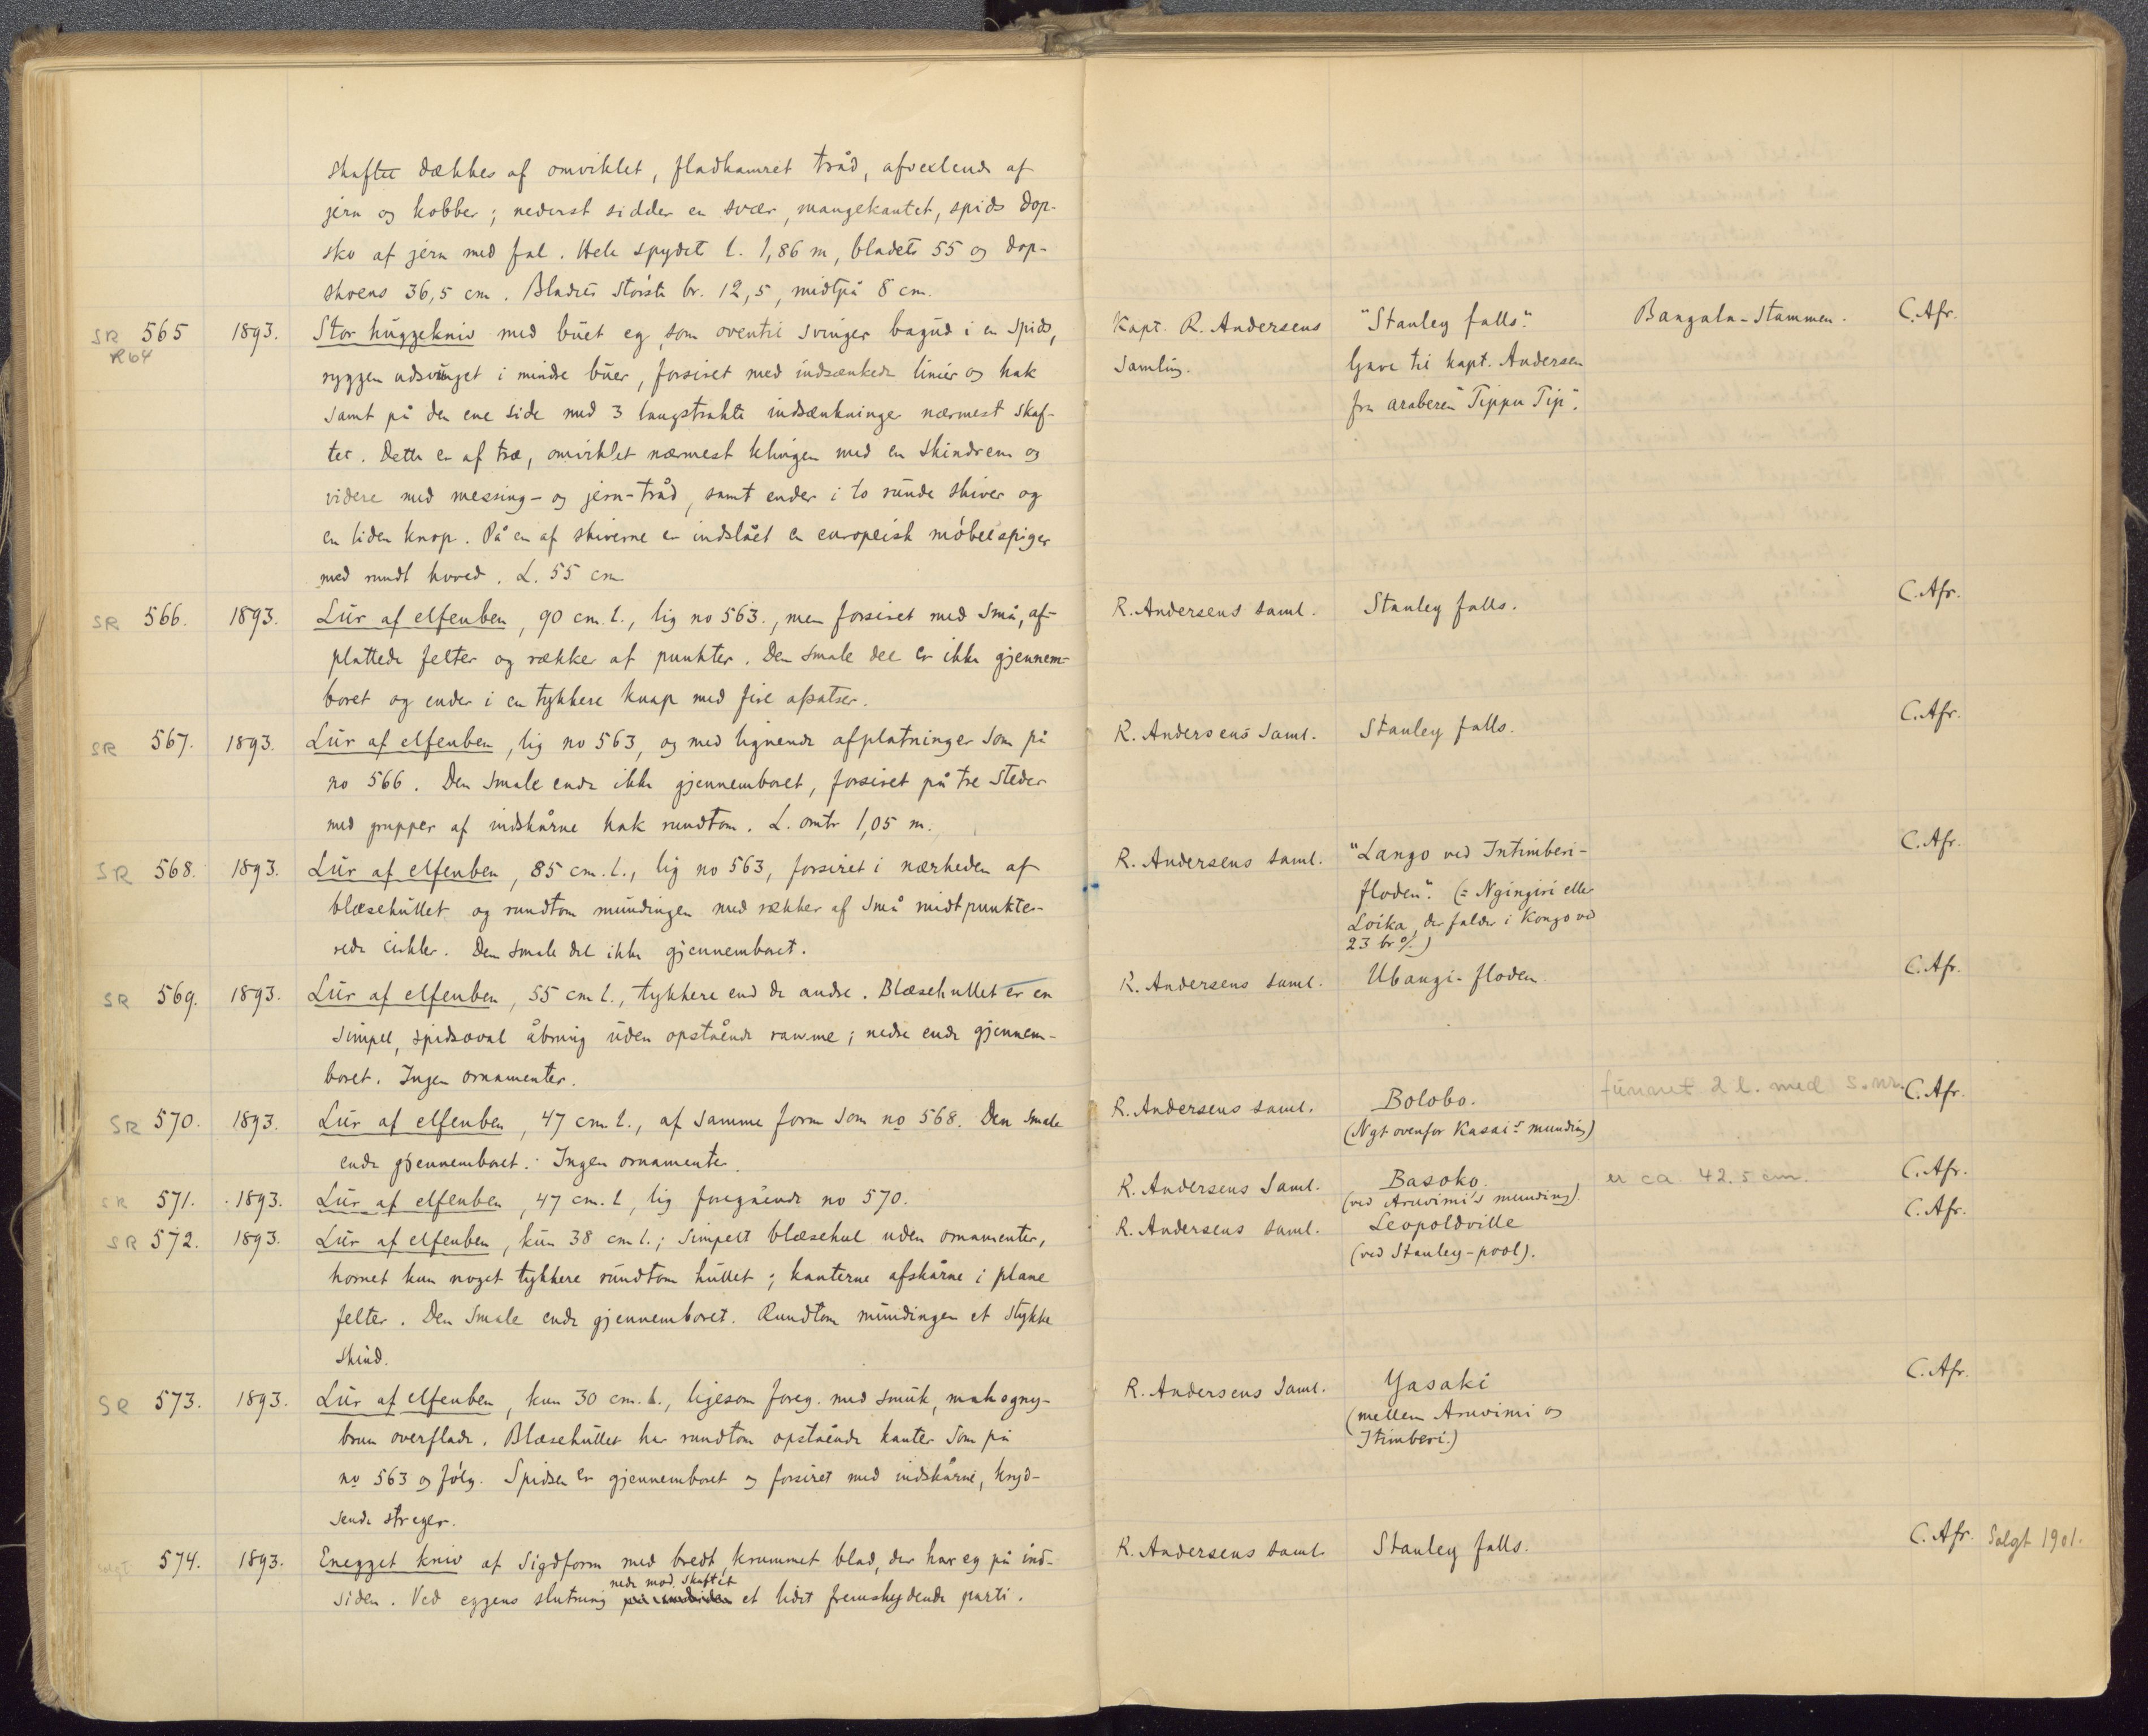 skaftet dækkes af omviklet, fladhamret tråd, afvexlende af
jern og kobber; nederst sidder en svær, mangekantet, spids dop-
sko af jern med fal. Hele spydets l. 1,86 m, bladets 55 og dop-
skoens 36,5 cm. Bladets største br. 12,5, midtpå 8 cm.
SR 565 1893. Stor huggekniv med buet eg, som oventil svinger bagud i en spids, Kapt. R. Andersens "Stanley falls". Bangala-stammen. C. Afr.
R64 ryggen udsvunget i mindre buer, forsiret med indsænkede linier og hak samling. Gave til kapt. Andersen
samt på den ene side med 3 langstrakte indsænkninger nærmest skaf- fra araberen "Tippu Tip".
tet. Dette er af træ, omviklet nærmest klingen med en skindrem og
videre med messing- og jern-tråd, samt ender i to runde skiver og
en liden knop. På en af skiverne er indslået en europeisk møbelspiger
med rundt hoved. L. 55 cm
SR 566. 1893. Lur af elfenben, 90 cm. l., lig no 563., men forsiret med små, af- R. Andersens saml. Stanley falls. C. Afr.
plattede felter og rækker af punkter. Den smale del er ikke gjennem-
boret og ender i en tykkere knap med fire afsatser.
SR 567. 1893. Lur af elfenben, lig no 563, og med lignende afplatninger som på R. Andersens saml. Stanley falls. C. Afr.
no 566. Den smale ende ikke gjennemboret, forsiret på tre steder
med grupper af indskårne hak rundtom. L. omtr 1,05 m.
SR 568. 1893. Lur af elfenben, 85 cm. l., lig no 563, forsiret i nærheden af R. Andersens saml. "Lango ved Intimberi- C. Afr.
blæsehullet og rundtom mundingen med rækker af små midtpunkte- floden". (= Ngingiri eller
rede cirkler. Den smale del ikke gjennemboret. Loika, der falder i Kongo ved
23 br %.)
SR 569. 1893. Lur af elfenben, 55 cm l., tykkere end de andre. Blæsehullet er en R. Andersens saml. Ubangi-floden. C. Afr.
simpel, spidsoval åbning uden opstående ramme; nedre ende gjennem-
boret. Ingen ornamenter.
SR 570. 1893. Lur af elfenben, 47 cm. l., af samme form som no 568. Den smale R. Andersens saml. Bolobo. funnet 2 l. med s. nr. C. Afr.
ende gjennemboret. Ingen ornamenter. (Ngt ovenfor Kasai's munding)
SR 571. 1893. Lur af elfenben, 47 cm. l, lig foregående no 570. R. Andersens saml. Basoko. er ca. 42.5 cm. C. Afr.
(ved Aruvimi's munding).
SR 572. 1893. Lur af elfenben, kun 38 cm l.; simpelt blæsehul uden ornamenter, R. Andersens saml. Leopoldville C. Afr.
hornet kun noget tykkere rundtom hullet; kanterne afskårne i plane (ved Stanley-pool).
felter. Den smale ende gjennemboret. Rundtom mundingen et stykke
skind.
SR 573. 1893. Lur af elfenben, kun 30 cm. l., ligesom foreg. med smuk, mahogny- R. Andersens saml. Yasaki C. Afr.
brun overflade. Blæsehullet har rundtom opstående kanter som på (mellem Aruvimi og
no 563 og følg. Spidsen er gjennemboret og forsiret med indskårne, kryd- Itimberi.)
sende streger.
solgt 574. 1893. Enegget kniv af sigdform med bredt, krummet blad, der har eg på ind- R. Andersens saml. Stanley falls. C. Afr. Solgt 1901.
nede mod skaftet
siden. Ved eggens slutning på indsiden et lidet fremskydende parti.